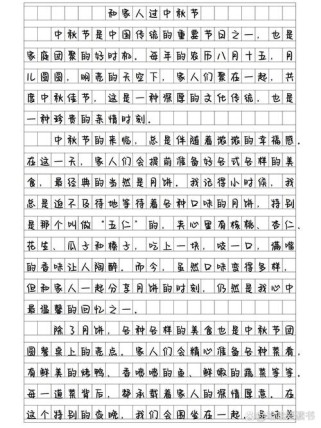 和家人过中秋节
中秋节是中国传统的重要节日之一，也是
家庭团聚的好时机。每年的农历八月十五，月
儿圆圆，明亮的天空下，家人们聚在一起，共
度中秋佳节，这是一种深厚的文化传统，也是
一种珍贵的亲情时刻。
中秋节的来临，总是伴随着浓浓的幸福感。
在这一天，家人们会提前准备好各式各样的美
食，最经典的当然是月饼。我记得小时候，我
总是迫不及待地等待着各种口味的月饼，特别
是那个叫做“五仁”的，夹心里有核桃、杏仁、
花生、瓜子和榛子，吃上一块，咬一口，满嘴
的香味让人陶醉。而今，虽然口味变得多样，
但和家人一起分享月饼的时刻，仍然是我心中
最温馨的回忆之一。
除了月饼，各种各样的美食也是中秋节团
圆餐桌上的亮点。家人们会精心准备各种菜肴，
有鲜美的烤鸭、香喷喷的鱼、鲜嫩的蔬菜等等。
每一道菜背后，都承载着家人的深情厚意。在
这个特别的夜晚，我们会围坐在一起，品味美